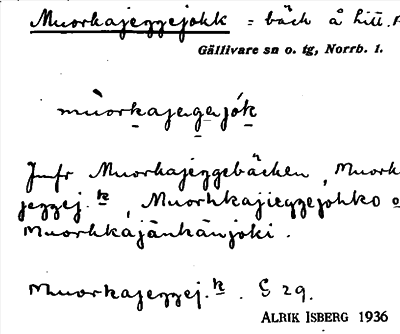 Muorkajeggejokk = bäck å litt.
Gällivare sn o. tg, Norrb. l.
mùorkajegejók
Jmfr Muorkajeggebäcken, Muork
jeggej.k, Muorhkajieggejohko o
Muorhkajänkänjoki.
Muorkajeggej.k. G 29.
ALRIK ISBERG 1936